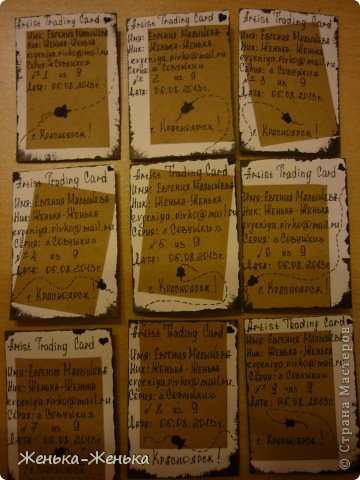 Artist Trading Card
Имя: Евгения Малышева
Ник: Женька-Женька
evgeniya.pivko@mail.ru
Серия: «Совушки»
№ 1 из 9
Дата: 05.08.2013г.
г. Красноярск!
Artist Trading Card
Имя: Евгения Малышева
Ник: Женька-Женька
evgeniya.pivko@mail.ru
Серия: «Совушки»
№ 2 из 9
Дата: 05.08.2013г.
г. Красноярск!
Artist Trading Card
Имя: Евгения Малышева
Ник: Женька-Женька
evgeniya.pivko@mail.ru
Серия: «Совушки»
№ 3 из 9
Дата: 05.08.2013г.
г. Красноярск!
Artist Trading Card
Имя: Евгения Малышева
Ник: Женька-Женька
evgeniya.pivko@mail.ru
Серия: «Совушки»
№ 4 из 9
Дата: 05.08.2013г.
г. Красноярск!
Artist Trading Card
Имя: Евгения Малышева
Ник: Женька-Женька
evgeniya.pivko@mail.ru
Серия: «Совушки»
№ 5 из 9
Дата: 05.08.2013г.
г. Красноярск!
Artist Trading Card
Имя: Евгения Малышева
Ник: Женька-Женька
evgeniya.pivko@mail.ru
Серия: «Совушки»
№ 6 из 9
Дата: 05.08.2013г.
г. Красноярск!
Artist Trading Card
Имя: Евгения Малышева
Ник: Женька-Женька
evgeniya.pivko@mail.ru
Серия: «Совушки»
№ 7 из 9
Дата: 05.08.2013г.
г. Красноярск!
Artist Trading Card
Имя: Евгения Малышева
Ник: Женька-Женька
evgeniya.pivko@mail.ru
Серия: «Совушки»
№ 8 из 9
Дата: 05.08.2013г.
г. Красноярск!
Artist Trading Card
Имя: Евгения Малышева
Ник: Женька-Женька
evgeniya.pivko@mail.ru
Серия: «Совушки»
№ 9 из 9
Дата: 05.08.2013г.
г. Красноярск!
Женька-Женька
© Страна Мастеров